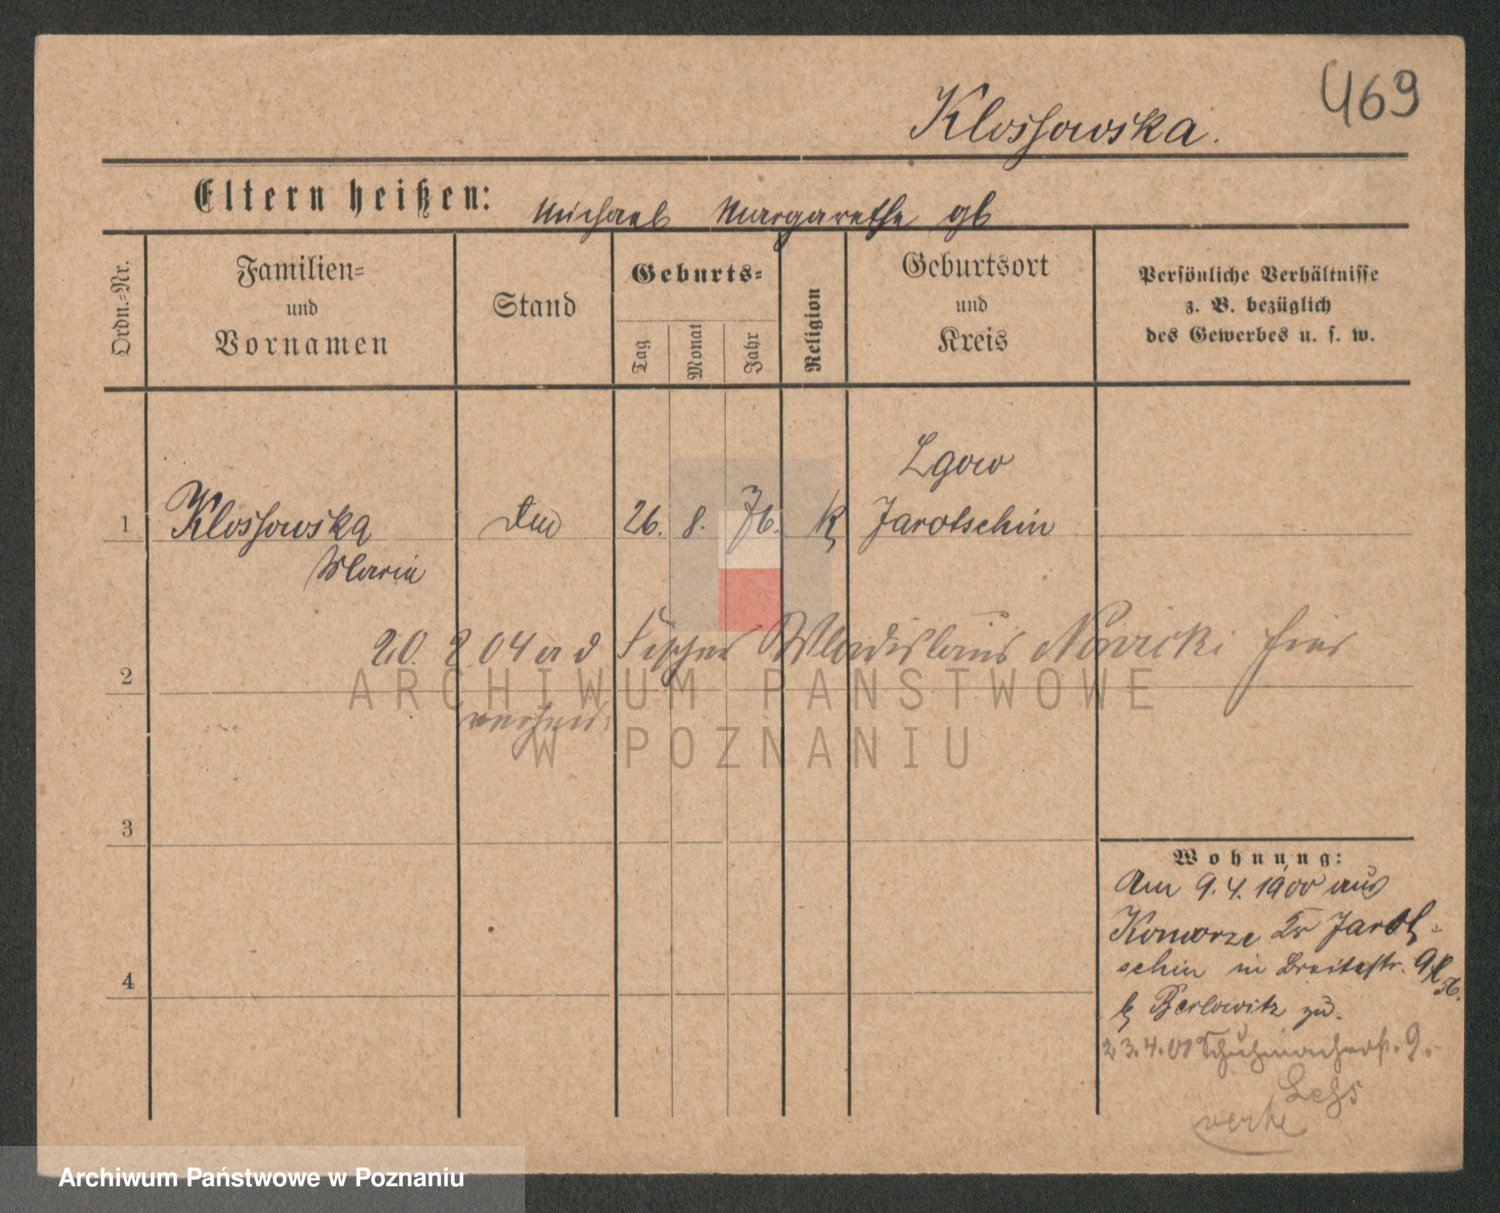 469
Klossowska.
Eltern heißen: Michael Margarethe gb
Ordn.-Nr.
Familien-
und
Vornamen
Stand
Geburts-
Tag
Monat
Jahr
Religion
Geburtsort
und
Kreis
Persönliche Verhältnisse
z. B. bezüglich
des Gewerbes u. s. w.
Lgow
1 Klossowska 26. 8. 76. k Jarotschin
Maria
20. 8 04 Wladislaus Nowicki hier
2
ARCHIWUM PAŃSTWOWE
W POZNANIU
3
Wohnung:
Am 9.4.1900 aus
Komorze Kr Jarot-
schin in Breitestr. 9
b Berlowitz zu.
4
23.4.01 Schuhmacherstr. 9.
verh
Archiwum Państwowe w Poznaniu